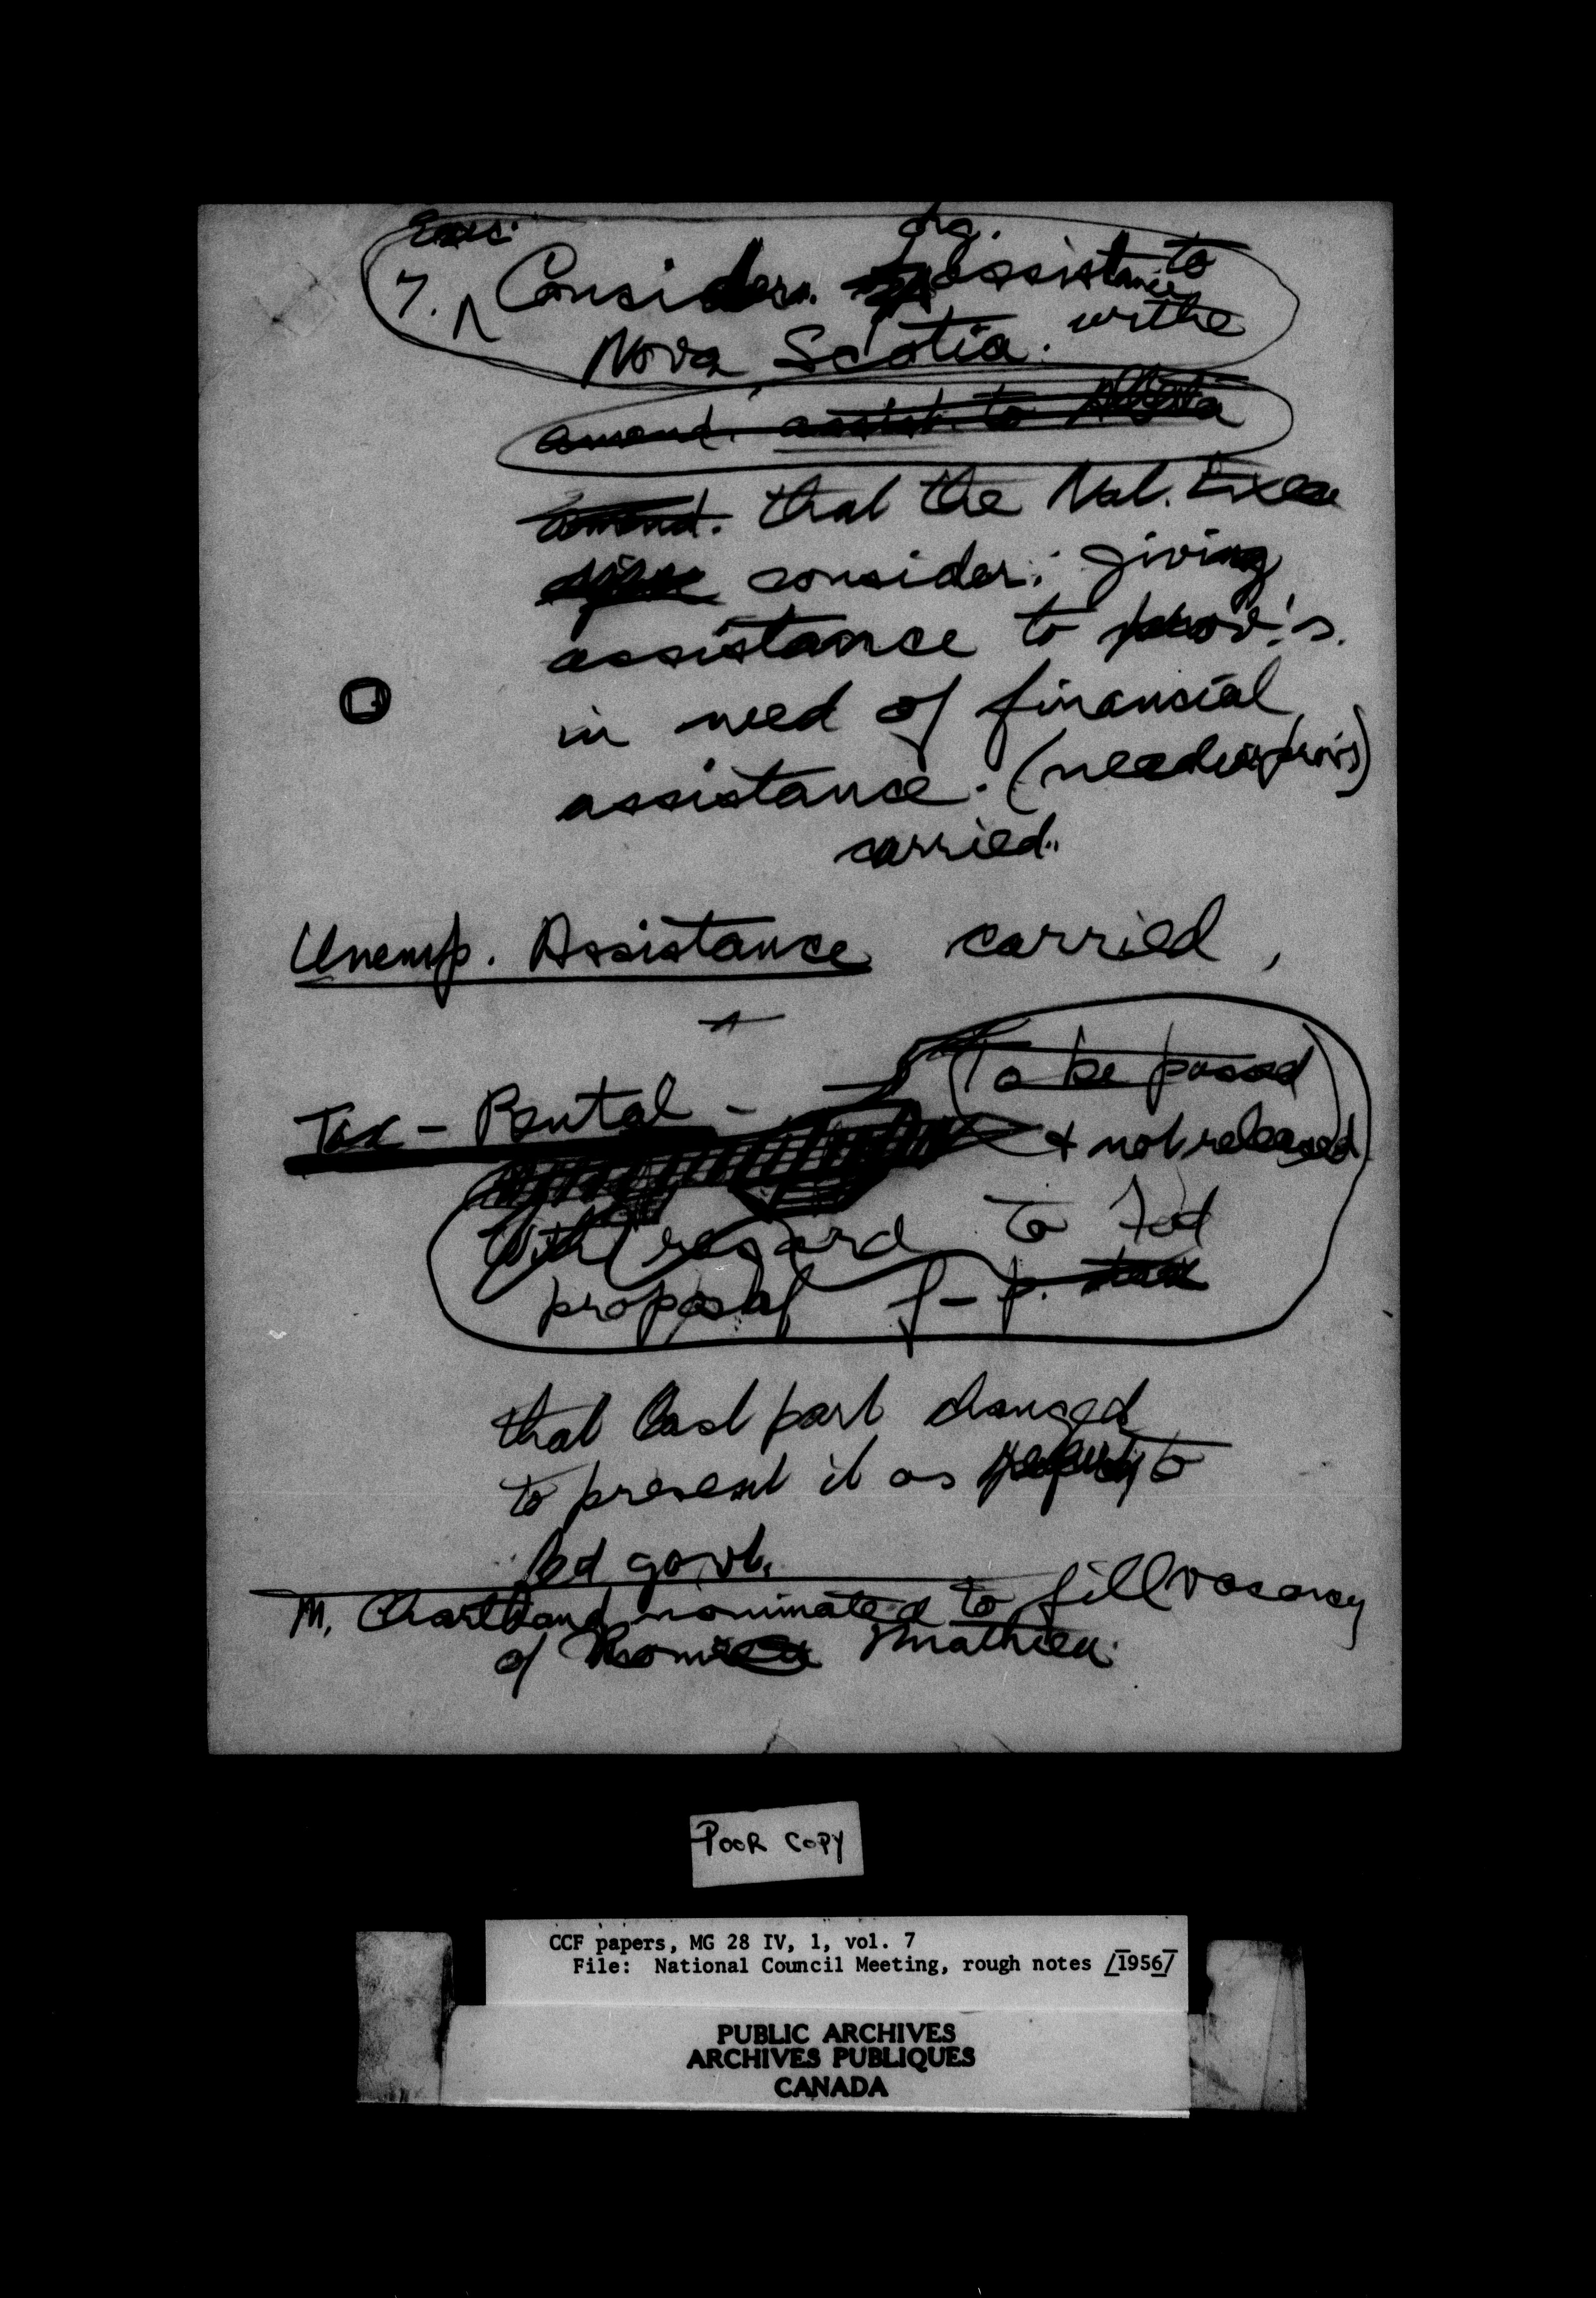 Exec. org.
7. Consider. assistance to
Nova Scotia. withe
amend. assist. to Alberta
amend. that the Nat. Exec
consider: giving
assistance to prov.'s.
in need of financial
assistance. (needier prov's)
carried.
Unemp. Assistance carried,
Tax - Rental - To be passed
& not released
With regard to Fed
proposal f-p. tax
that last part changed
to present it as to
fed govt.
M. Chartrand nominated to fill vacancy
of Romeo Mathieu.
POOR COPY
CCF papers, MG 28 IV, 1, vol. 7
File: National Council Meeting, rough notes /1956/
PUBLIC ARCHIVES
ARCHIVES PUBLIQUES
CANADA